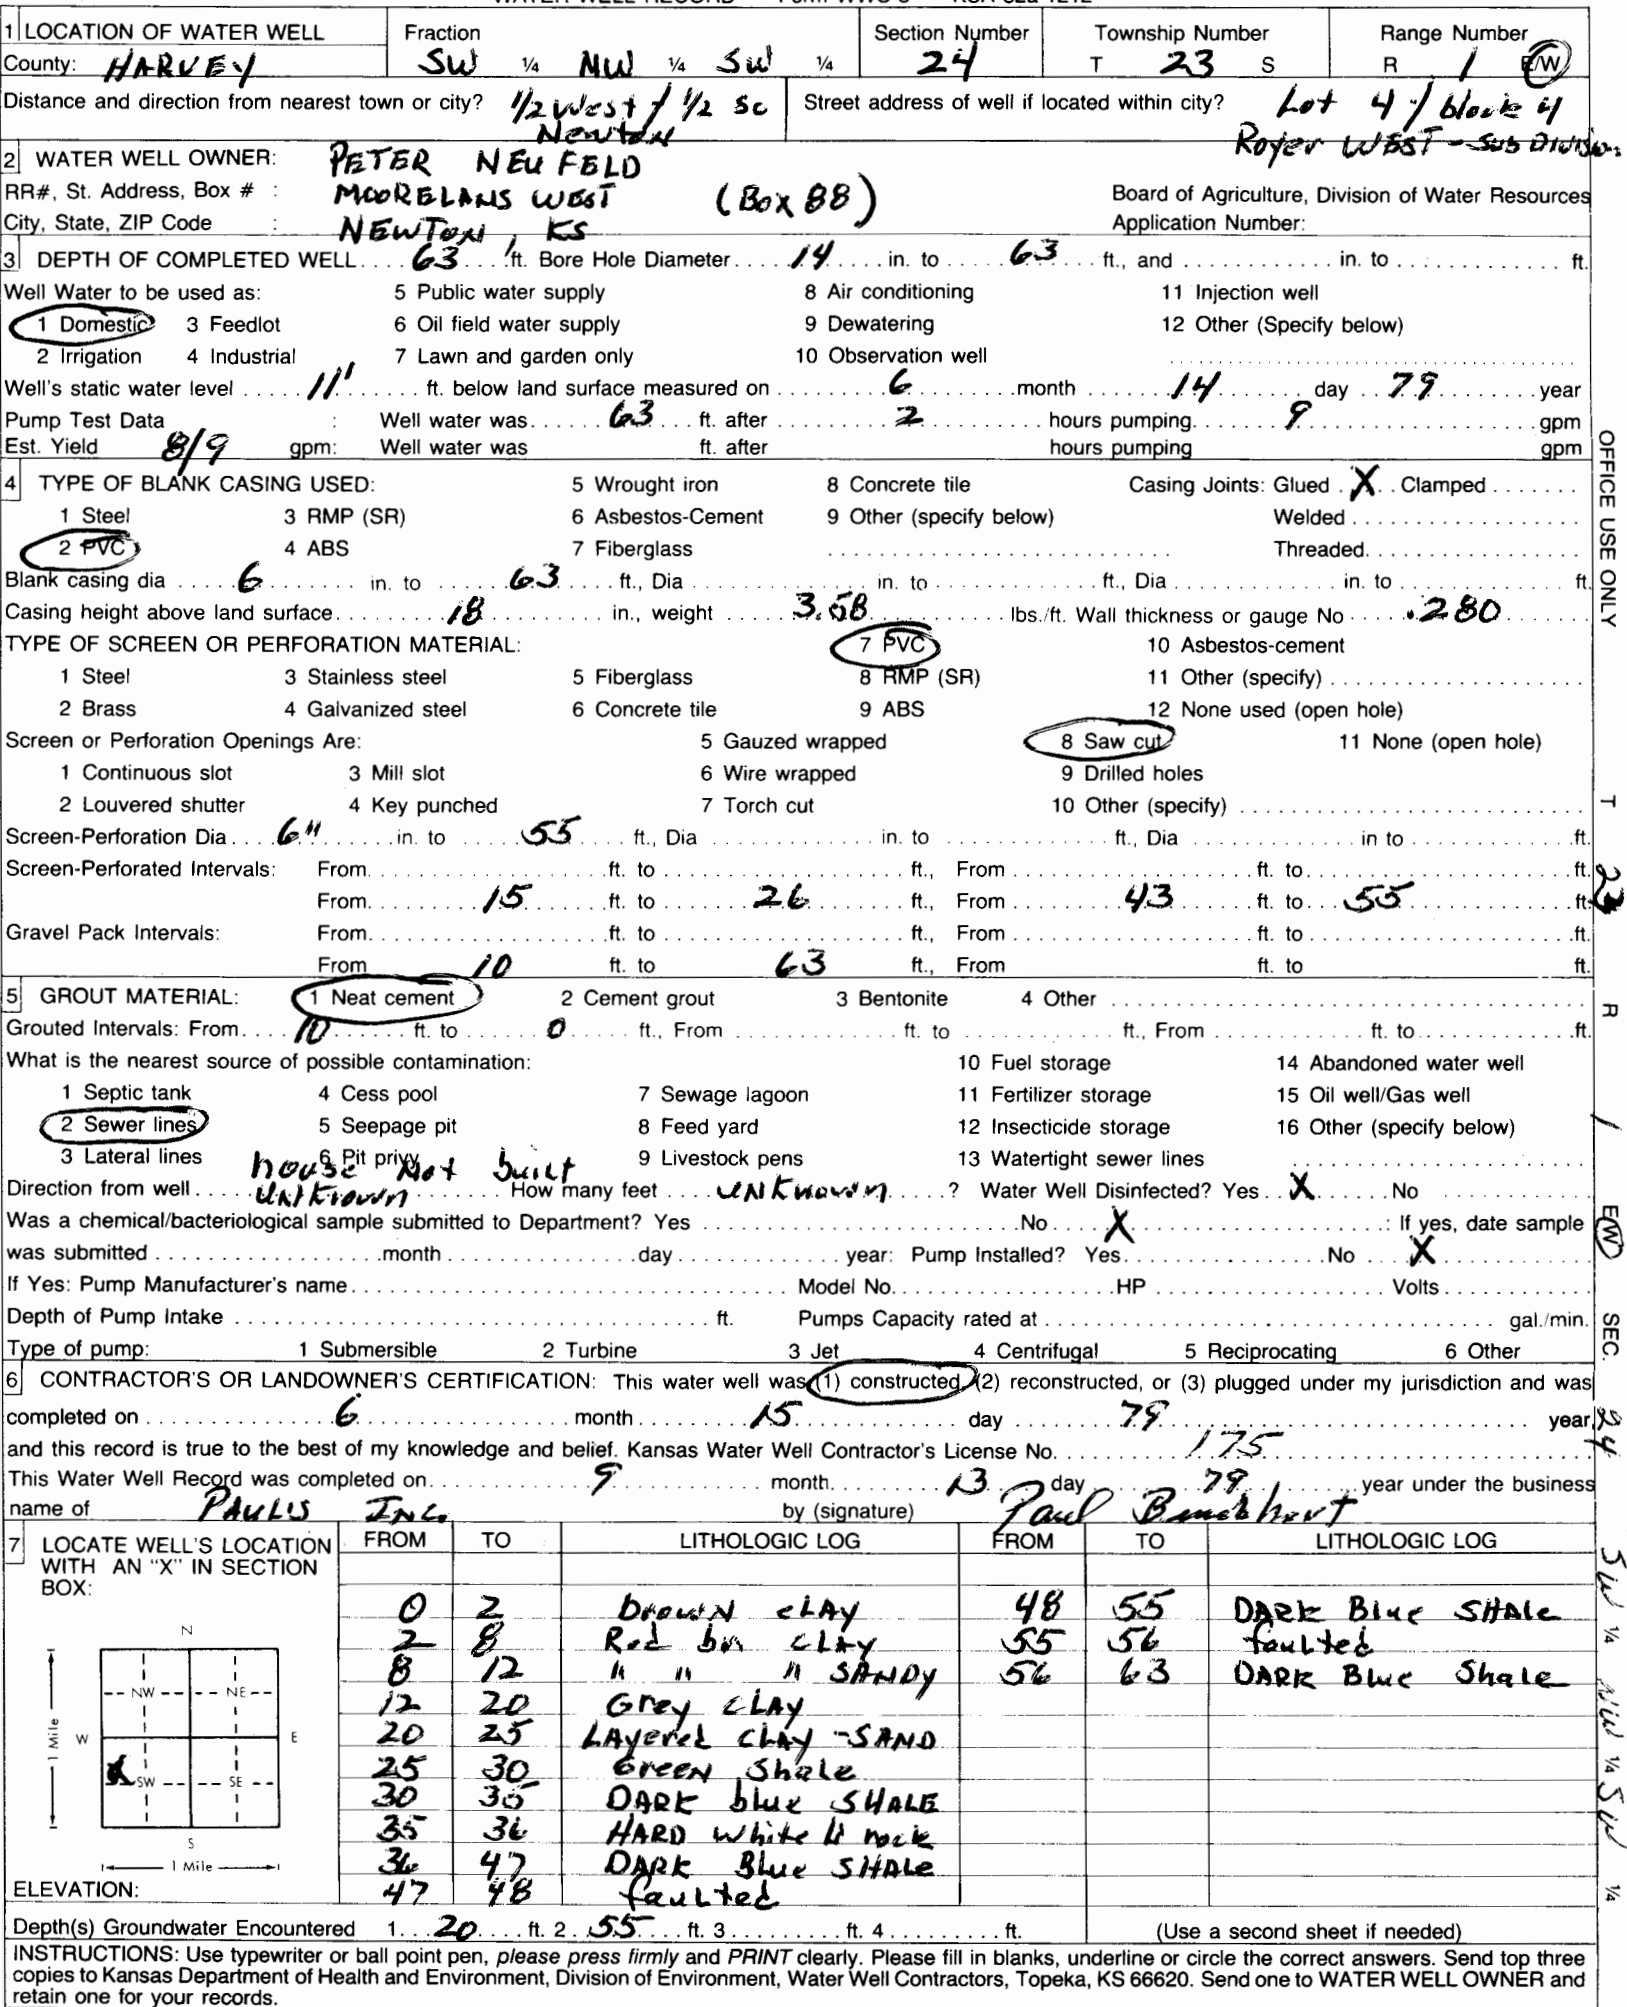 WATER WELL RECORD Form WWC-5 KSA 82a-1212
1 LOCATION OF WATER WELL Fraction Section Number Township Number Range Number
County: HARVEY SW ¼ NW ¼ SW ¼ 24 T 23 S R 1 E/W
Distance and direction from nearest town or city? 1/2 West / 1/2 So Street address of well if located within city? Lot 4 / block 4
Newton Royer WEST - Sub Division
2 WATER WELL OWNER: PETER NEUFELD
RR#, St. Address, Box # : MOORELANS WEST (Box 88) Board of Agriculture, Division of Water Resources
City, State, ZIP Code : NEWTON, KS Application Number:
3 DEPTH OF COMPLETED WELL 63 ft. Bore Hole Diameter 14 in. to 63 ft., and in. to ft.
Well Water to be used as: 5 Public water supply 8 Air conditioning 11 Injection well
1 Domestic 3 Feedlot 6 Oil field water supply 9 Dewatering 12 Other (Specify below)
2 Irrigation 4 Industrial 7 Lawn and garden only 10 Observation well
Well's static water level 11' ft. below land surface measured on 6 month 14 day 79 year
Pump Test Data : Well water was 63 ft. after 2 hours pumping 9 gpm
Est. Yield 8/9 gpm: Well water was ft. after hours pumping gpm
4 TYPE OF BLANK CASING USED: 5 Wrought iron 8 Concrete tile Casing Joints: Glued X Clamped
1 Steel 3 RMP (SR) 6 Asbestos-Cement 9 Other (specify below) Welded
2 PVC 4 ABS 7 Fiberglass Threaded
Blank casing dia 6 in. to 63 ft., Dia in. to ft., Dia in. to ft.
Casing height above land surface 18 in., weight 3.58 lbs./ft. Wall thickness or gauge No .280
TYPE OF SCREEN OR PERFORATION MATERIAL: 7 PVC 10 Asbestos-cement
1 Steel 3 Stainless steel 5 Fiberglass 8 RMP (SR) 11 Other (specify)
2 Brass 4 Galvanized steel 6 Concrete tile 9 ABS 12 None used (open hole)
Screen or Perforation Openings Are: 5 Gauzed wrapped 8 Saw cut 11 None (open hole)
1 Continuous slot 3 Mill slot 6 Wire wrapped 9 Drilled holes
2 Louvered shutter 4 Key punched 7 Torch cut 10 Other (specify)
Screen-Perforation Dia 6" in. to 55 ft., Dia in. to ft., Dia in to ft.
Screen-Perforated Intervals: From ft. to ft., From ft. to ft.
From 15 ft. to 26 ft., From 43 ft. to 55 ft.
Gravel Pack Intervals: From ft. to ft., From ft. to ft.
From 10 ft. to 63 ft., From ft. to ft.
5 GROUT MATERIAL: 1 Neat cement 2 Cement grout 3 Bentonite 4 Other
Grouted Intervals: From 10 ft. to 0 ft., From ft. to ft., From ft. to ft.
What is the nearest source of possible contamination: 10 Fuel storage 14 Abandoned water well
1 Septic tank 4 Cess pool 7 Sewage lagoon 11 Fertilizer storage 15 Oil well/Gas well
2 Sewer lines 5 Seepage pit 8 Feed yard 12 Insecticide storage 16 Other (specify below)
3 Lateral lines 6 Pit privy 9 Livestock pens 13 Watertight sewer lines
house Not built
Direction from well UNKNOWN How many feet UNKNOWN ? Water Well Disinfected? Yes X No
Was a chemical/bacteriological sample submitted to Department? Yes No X : If yes, date sample
was submitted month day year: Pump Installed? Yes No X
If Yes: Pump Manufacturer's name Model No. HP Volts
Depth of Pump Intake ft. Pumps Capacity rated at gal./min.
Type of pump: 1 Submersible 2 Turbine 3 Jet 4 Centrifugal 5 Reciprocating 6 Other
6 CONTRACTOR'S OR LANDOWNER'S CERTIFICATION: This water well was (1) constructed (2) reconstructed, or (3) plugged under my jurisdiction and was
completed on 6 month 15 day 79 year
and this record is true to the best of my knowledge and belief. Kansas Water Well Contractor's License No. 175
This Water Well Record was completed on 9 month 13 day 79 year under the business
name of PAULS INC. by (signature) Paul
7 LOCATE WELL'S LOCATION WITH AN "X" IN SECTION BOX:
FROM TO LITHOLOGIC LOG FROM TO LITHOLOGIC LOG
0 2 brown CLAY 48 55 DARK Blue SHALe
2 8 Red bn CLAY 55 56 faulted
8 12 " " " SANDY 56 63 DARK Blue Shale
12 20 Grey CLAY
20 25 LAyered CLAY - SAND
25 30 Green Shale
30 35 DARK blue SHALE
35 36 HARD White li rock
36 47 DARK Blue SHALe
47 48 faulted
N
NW NE
W E
X SW SE
S
1 Mile
1 Mile
ELEVATION:
Depth(s) Groundwater Encountered 1. 20 ft. 2. 55 ft. 3 ft. 4 ft. (Use a second sheet if needed)
INSTRUCTIONS: Use typewriter or ball point pen, please press firmly and PRINT clearly. Please fill in blanks, underline or circle the correct answers. Send top three
copies to Kansas Department of Health and Environment, Division of Environment, Water Well Contractors, Topeka, KS 66620. Send one to WATER WELL OWNER and
retain one for your records.
OFFICE USE ONLY
T 23 R 1 E/W SEC. 24 SW ¼ NW ¼ SW ¼